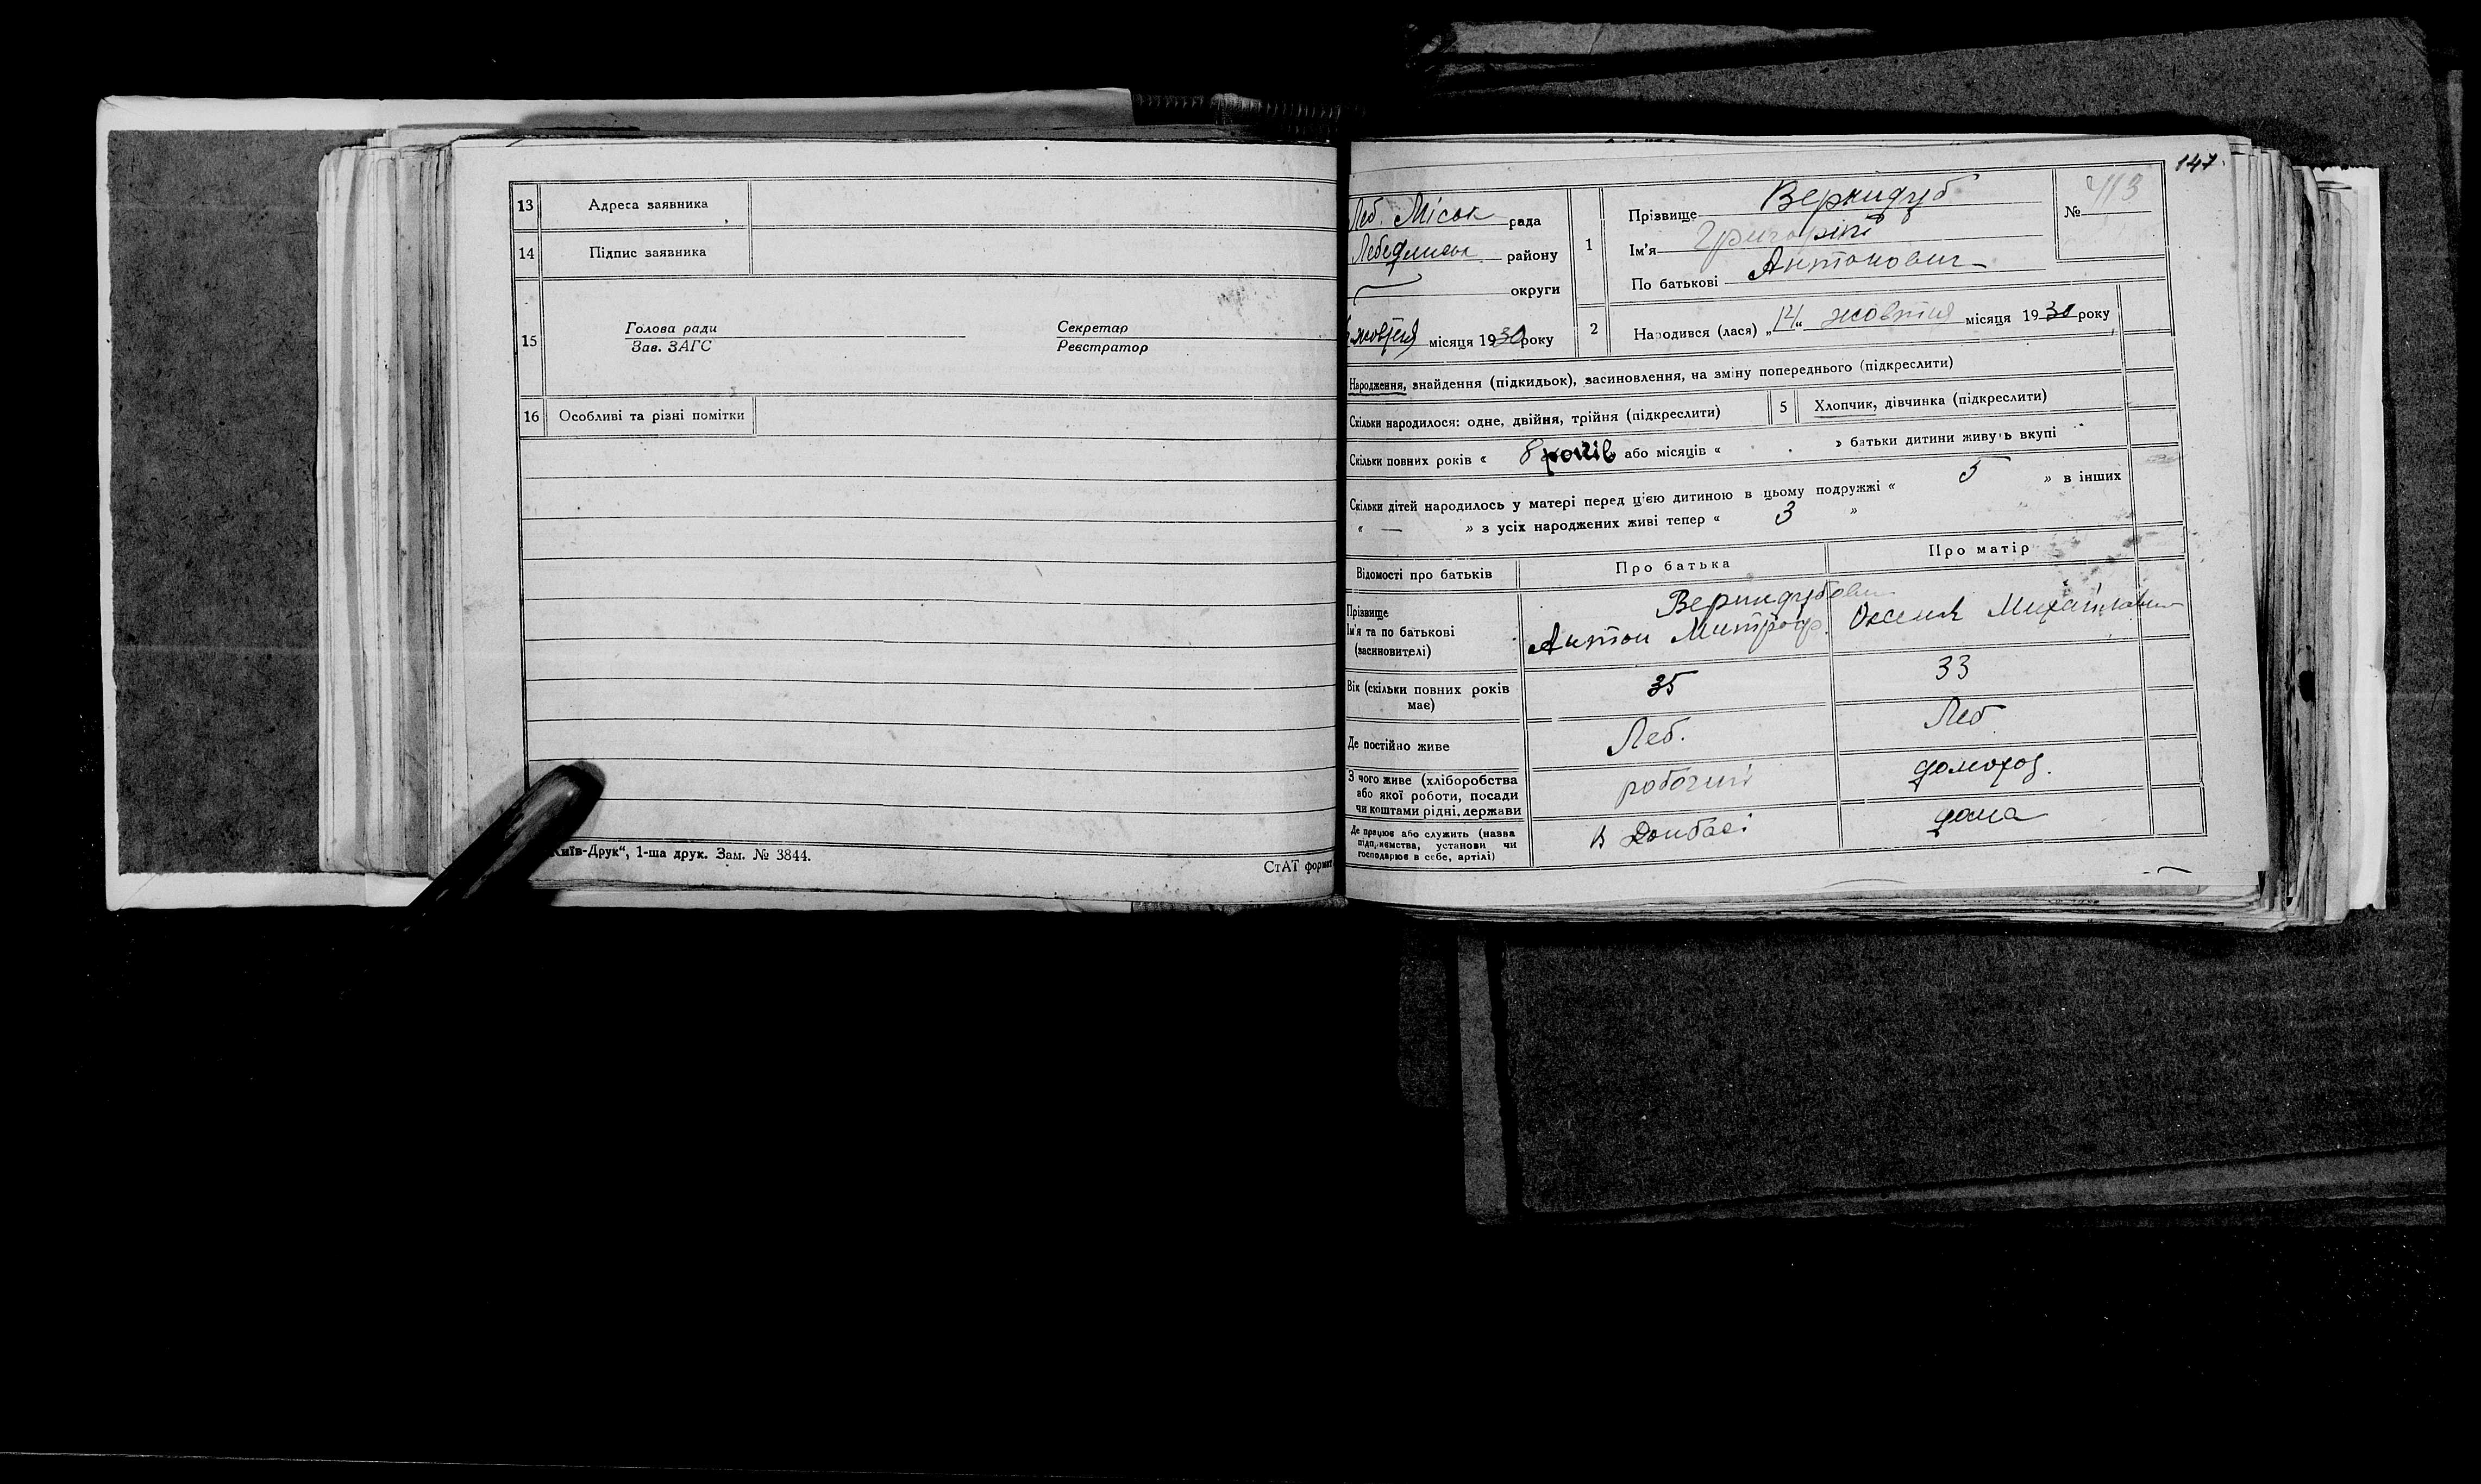 13 Адреса заявника
14 Підпис заявника
15 Голова ради Секретар
Зав. ЗАГС Реєстратор
16 Особливі та різні помітки
Київ-Друк“, 1-ша друк. Зам. № 3844.
СтАТ формат
147.
Леб. Міськ рада
Лебединськ району
округи
жовтня місяця 1930 року
1 Прізвище Вернидуб
Ім'я Григорій
По батькові Антонович
№ 413
2 Народився (лася) „14“ жовтня місяця 1930 року
Народження, знайдення (підкидьок), засиновлення, на зміну попереднього (підкреслити)
Скільки народилося: одне, двійня, трійня (підкреслити) 5 Хлопчик, дівчинка (підкреслити)
Скільки повних років « 8 років або місяців « » батьки дитини живуть вкупі
Скільки дітей народилось у матері перед цією дитиною в цьому подружжі « 5 » в інших
« — » з усіх народжених живі тепер « 3 »
Відомості про батьків Про батька Про матір
Прізвище
Ім'я та по батькові
(засиновителі)
Вернидубови
Антон Митроф. Оксена Михайлівна
Вік (скільки повних років
має) 35 33
Де постійно живе Леб. Леб
З чого живе (хліборобства
або якої роботи, посади
чи коштами рідні, держави
робочий домогос.
Де працює або служить (назва
підприємства, установи чи
господарює в себе, артілі)
В Донбасі дома